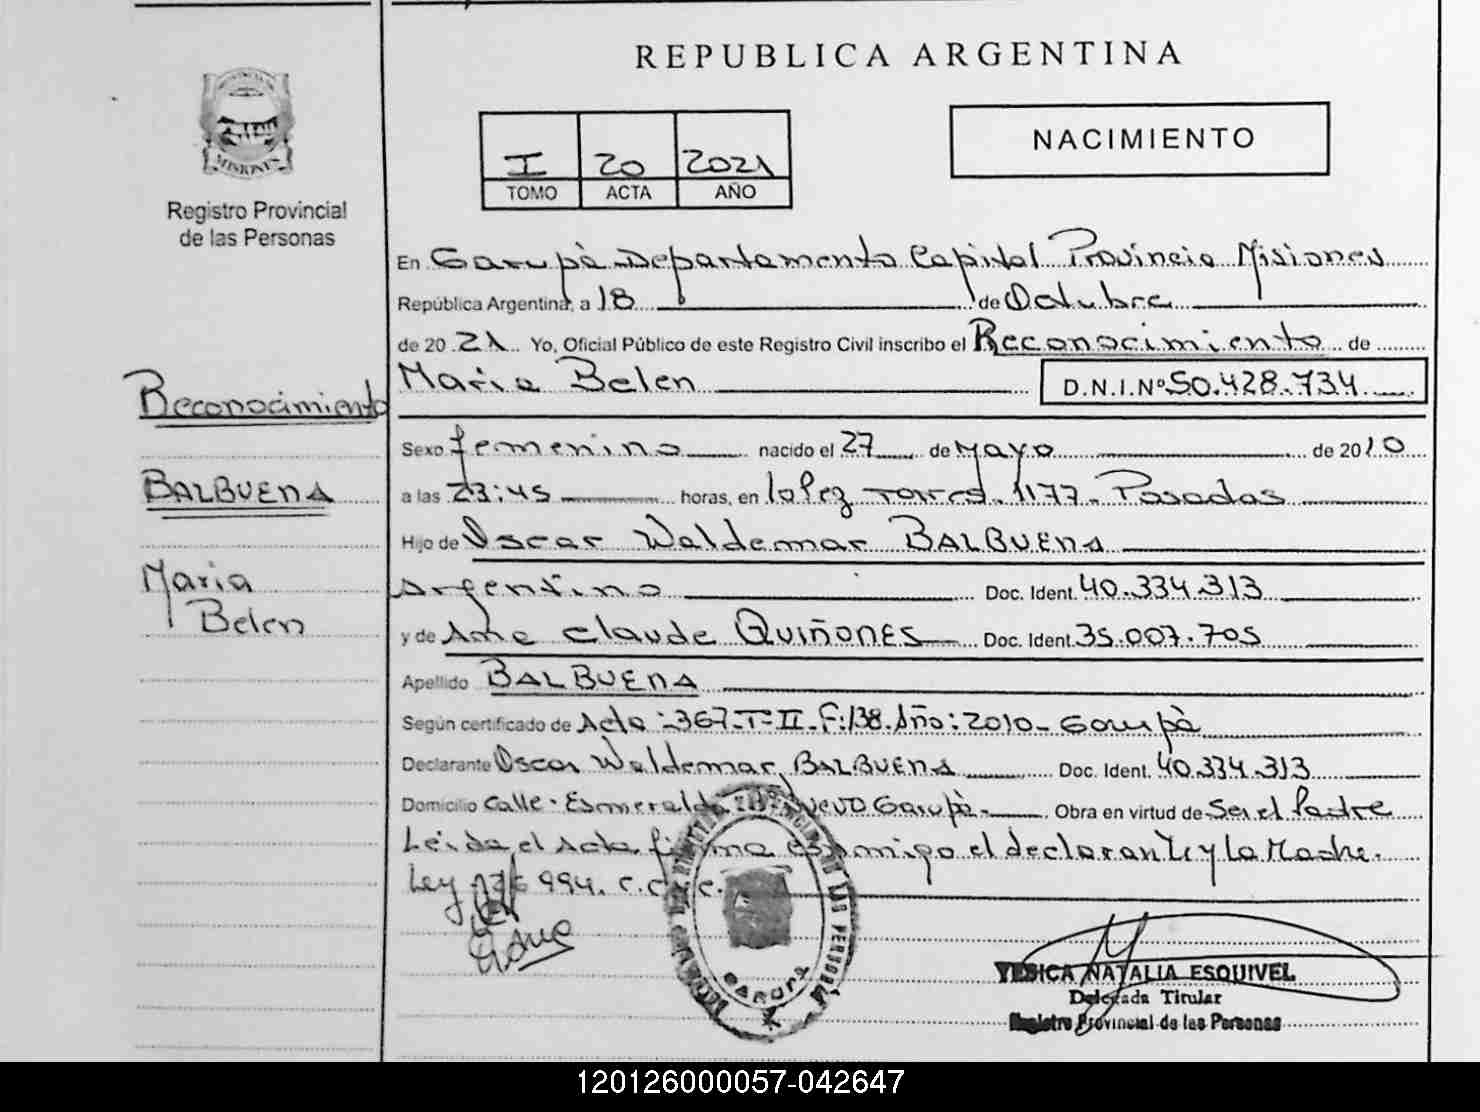 REPUBLICA ARGENTINA
MISIONES
Registro Provincial
de las Personas
I 20 2021
TOMO ACTA AÑO
NACIMIENTO
En Garupà Departamento Capital Provincia Misiones
República Argentina, a 18 de Octubre
de 2021 Yo, Oficial Público de este Registro Civil inscribo el Reconocimiento de
Maria Belen D.N.I.Nº 50.428.734
Reconocimiento
BALBUENA
Maria
Belen
Sexo femenino nacido el 27 de Mayo de 2010
a las 23:45 horas, en lopez torres. 1177. Posadas
Hijo de Oscar Waldemar BALBUENA
Argentino Doc. Ident. 40.334.313
y de Ana Claude QUIÑONES Doc. Ident. 35.007.705
Apellido BALBUENA
Según certificado de Acta: 367. T: II. F: 138. Año: 2010 - Garupà
Declarante Oscar Waldemar BALBUENA Doc. Ident. 40.334.313
Domicilio Calle. Esmeralda Nuevo Garupà. Obra en virtud de Ser el Padre
Leida el Acta firma conmigo el declarante y la Madre.
Ley 994. C.C.
GARUPA
YESICA NATALIA ESQUIVEL
Delegada Titular
Registro Provincial de las Personas
120126000057-042647